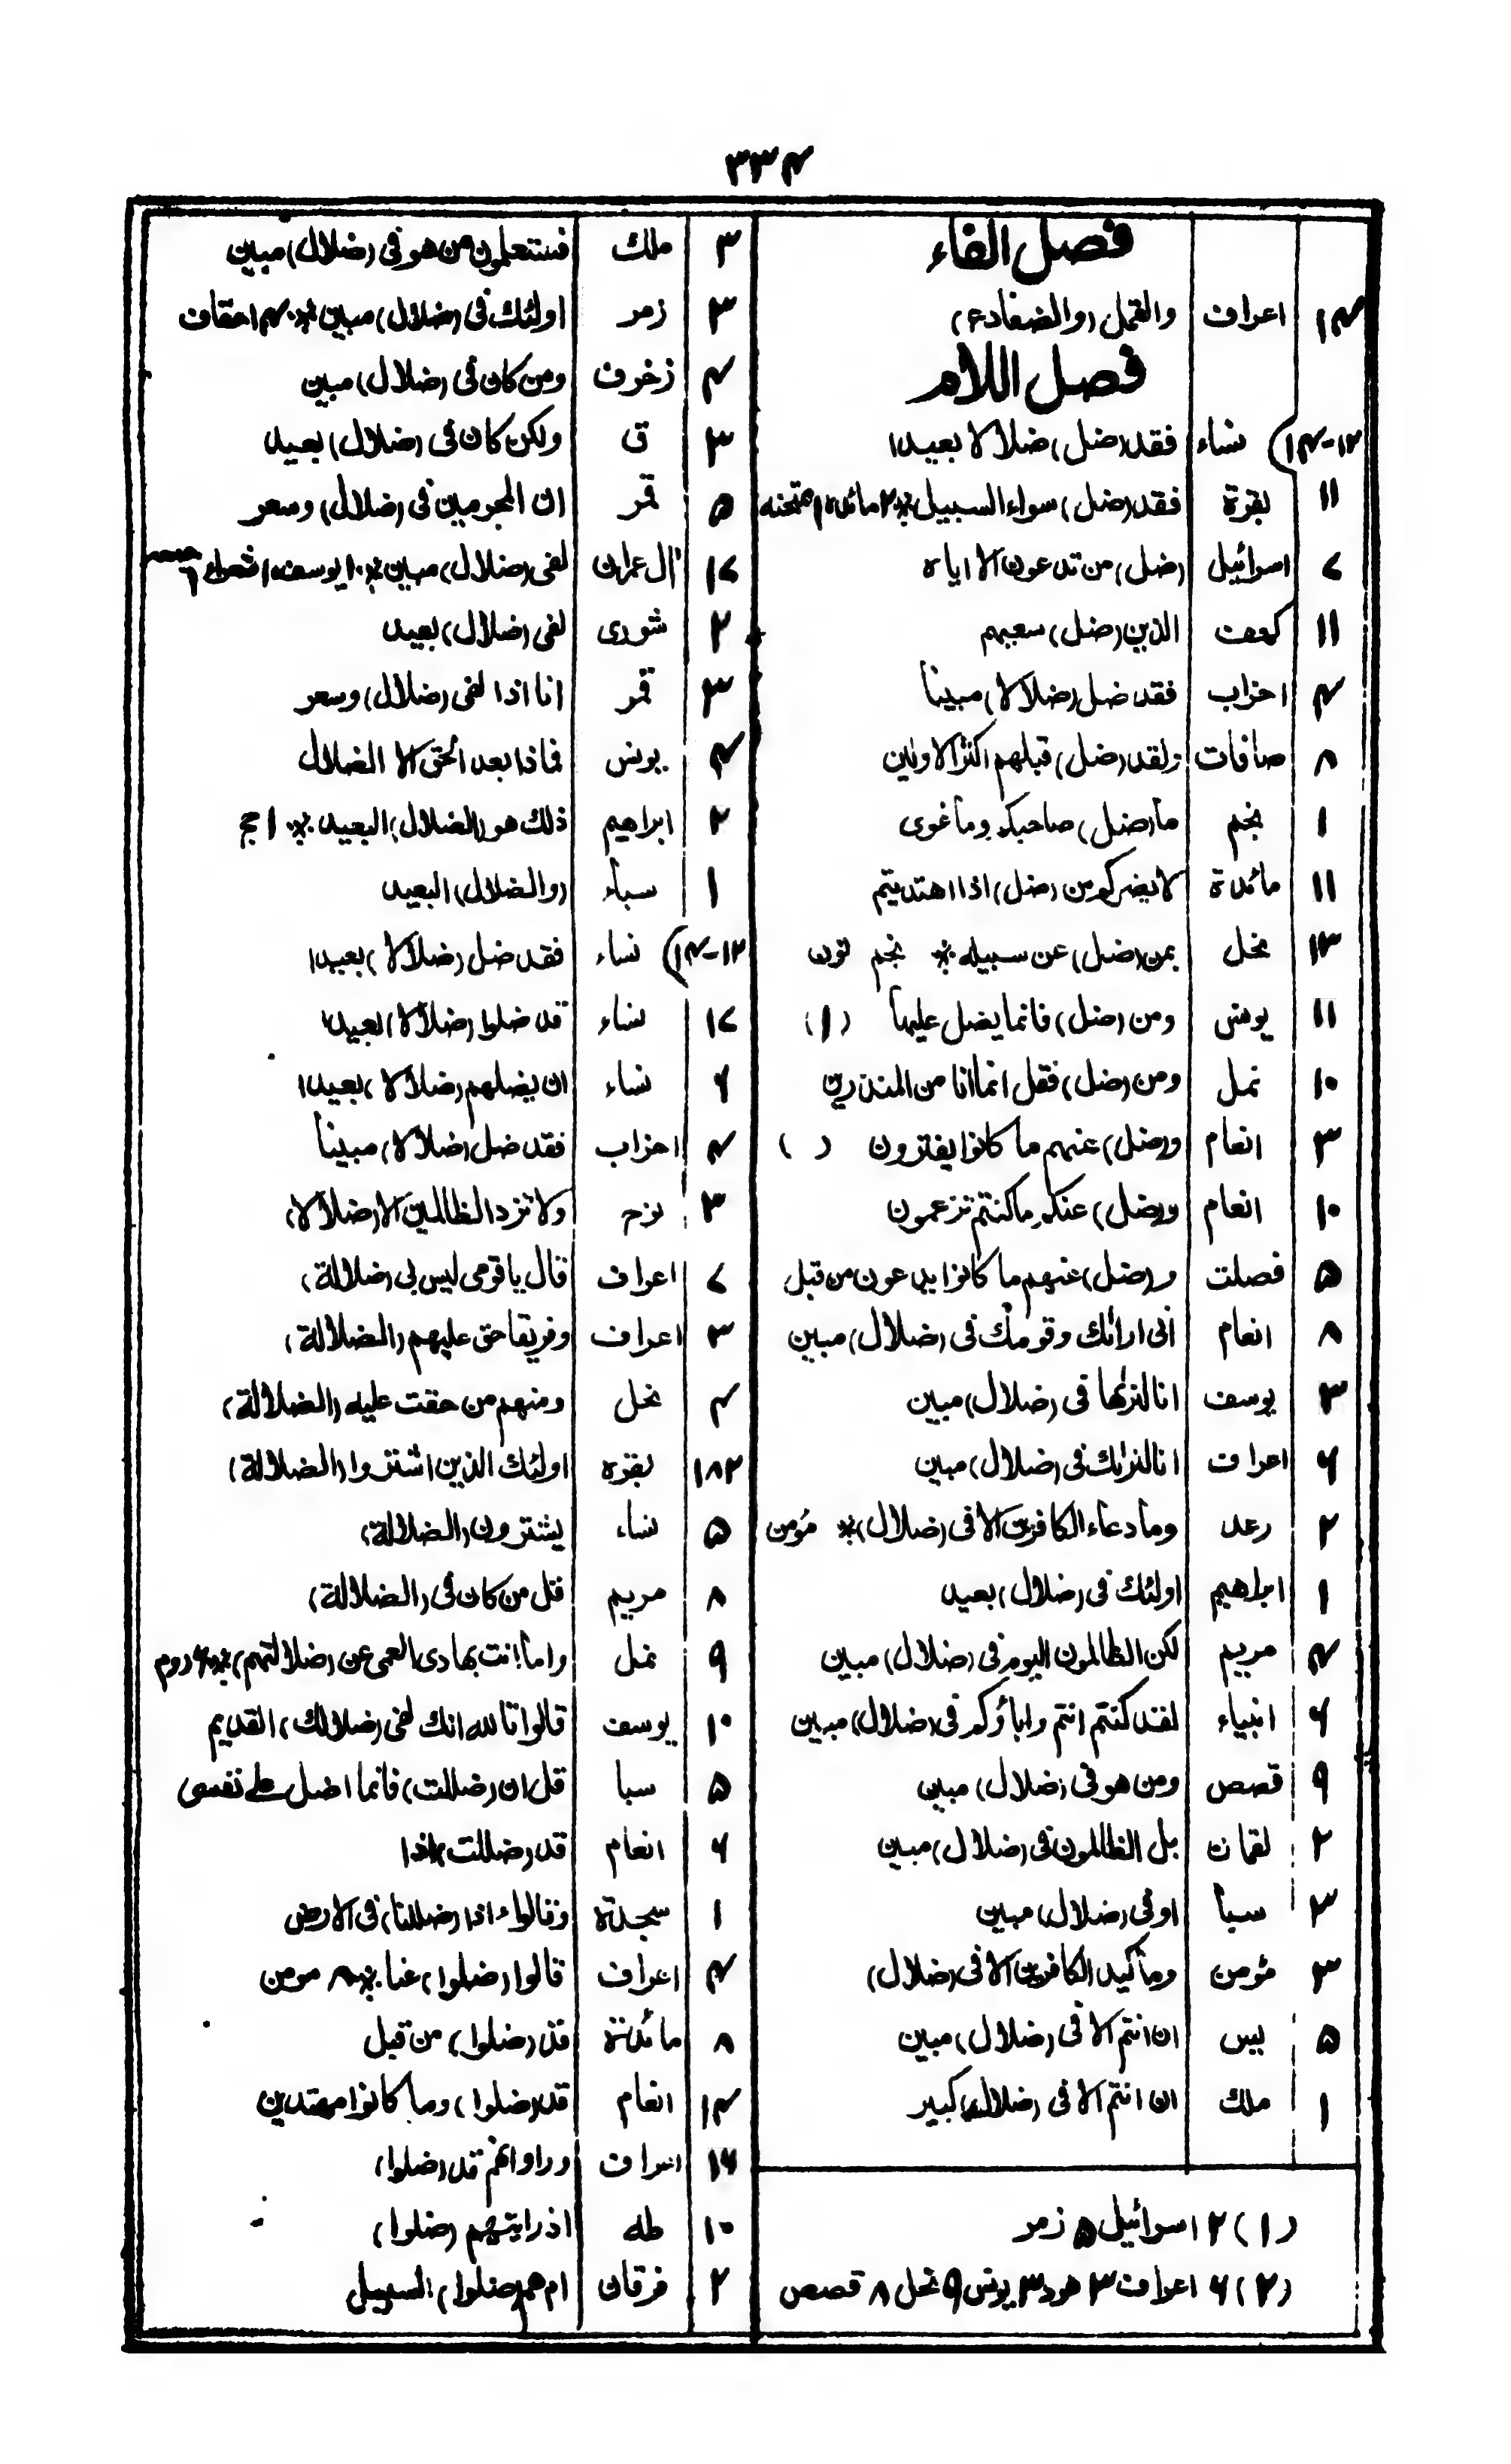 ۳۳۴
فصل الفاء
۱۴ اعراف والقمل (والضفادع)
فصل اللام
(۱۴-۱۲ نساء فقد (ضل) ضلالا بعيدا
۱۱ بقرة فقد (ضل) سواء السبيل ۲ مائده ۱ ممتحنه
۷ اسرائيل (ضل) من تدعون الا اياه
۱۱ كهف الذين (ضل) سعيهم
۴ احزاب فقد ضل (ضلالا) مبينا
۸ صافات ولقد (ضل) قبلهم اكثر الاولين
۱ نجم ما (ضل) صاحبكم وما غوى
۱۱ مائدة لا يضركم من (ضل) اذا اهتديتم
۱۳ نحل بمن (ضل) عن سبيله نجم نون
۱۱ يونس ومن (ضل) فانما يضل عليها (۱)
۱۰ نمل ومن (ضل) فقل انما انا من المنذرين
۳ انعام و(ضل) عنهم ما كانوا يفترون ( )
۱۰ انعام و(ضل) عنكم ما كنتم تزعمون
۵ فصلت و(ضل) عنهم ما كانوا يدعون من قبل
۸ انعام انى ارائك وقومك فى (ضلال) مبين
۳ يوسف انا لنرىها فى (ضلال) مبين
۶ اعراف انا لنرىك فى (ضلال) مبين
۲ رعد وما دعاء الكافرين الا فى (ضلال) مؤمن
۱ ابراهيم اولئك فى (ضلال) بعيد
۴ مريم لكن الظالمون اليوم فى (ضلال) مبين
۶ انبياء لقد كنتم انتم واباؤكم فى (ضلال) مبين
۹ قصص ومن هو فى (ضلال) مبين
۲ لقمان بل الظالمون فى (ضلال) مبين
۳ سبأ او فى (ضلال) مبين
۳ مؤمن وما كيد الكافرين الا فى (ضلال)
۵ يس ان انتم الا فى (ضلال) مبين
۱ ملك ان انتم الا فى (ضلال) كبير
(۱) ۲ اسرائيل ۵ زمر
(۲) ۶ اعراف ۳ هود ۳ يونس ۹ نحل ۸ قصص
۳ ملك فستعلمون من هو فى (ضلال) مبين
۳ زمر اولئك فى (ضلال) مبين ۴ احقاف
۴ زخرف ومن كان فى (ضلال) مبين
۳ ق ولكن كان فى (ضلال) بعيد
۵ قمر ان المجرمين فى (ضلال) وسعر
۱۷ آل عمران لفى (ضلال) مبين ۱۰ يوسف ۱۰ شعراء
۲ شورى لفى (ضلال) بعيد
۳ قمر انا اذا لفى (ضلال) وسعر
۴ يونس فماذا بعد الحق الا الضلال
۲ ابراهيم ذلك هو (الضلال) البعيد ۱ حج
۱ سباء (والضلال) البعيد
(۱۴-۱۲ نساء فقد ضل (ضلالا) بعيدا
۱۷ نساء قد ضلوا (ضلالا) بعيدا
۶ نساء ان يضلهم (ضلالا) بعيدا
۴ احزاب فقد ضل (ضلالا) مبينا
۳ نوح ولا تزد الظالمين الا (ضلالا)
۷ اعراف قال يا قومى ليس بى (ضلالة)
۳ اعراف وفريقا حق عليهم (الضلالة)
۴ نحل ومنهم من حقت عليه (الضلالة)
۱۸۲ بقره اولئك الذين اشتروا (الضلالة)
۵ نساء يشترون (الضلالة)
۸ مريم قل من كان فى (الضلالة)
۹ نمل وما انت بهادى العمى عن (ضلالتهم) روم
۱۰ يوسف قالوا تا لله انك لفى (ضلالك) القديم
۵ سبا قل ان (ضللت) فانما اضل على نفسى
۶ انعام قد (ضللت) اذا
۱ سجدة وقالوا ءاذا (ضللنا) فى الارض
۴ اعراف قالوا (ضلوا) عنا ۸ مومن
۸ مائدة قد (ضلوا) من قبل
۱۴ انعام قد (ضلوا) وما كانوا مهتدين
۱۶ اعراف وراوا انهم قد (ضلوا)
۱۰ طه اذ رايتهم (ضلوا)
۲ فرقان ام هم (ضلوا) السبيل